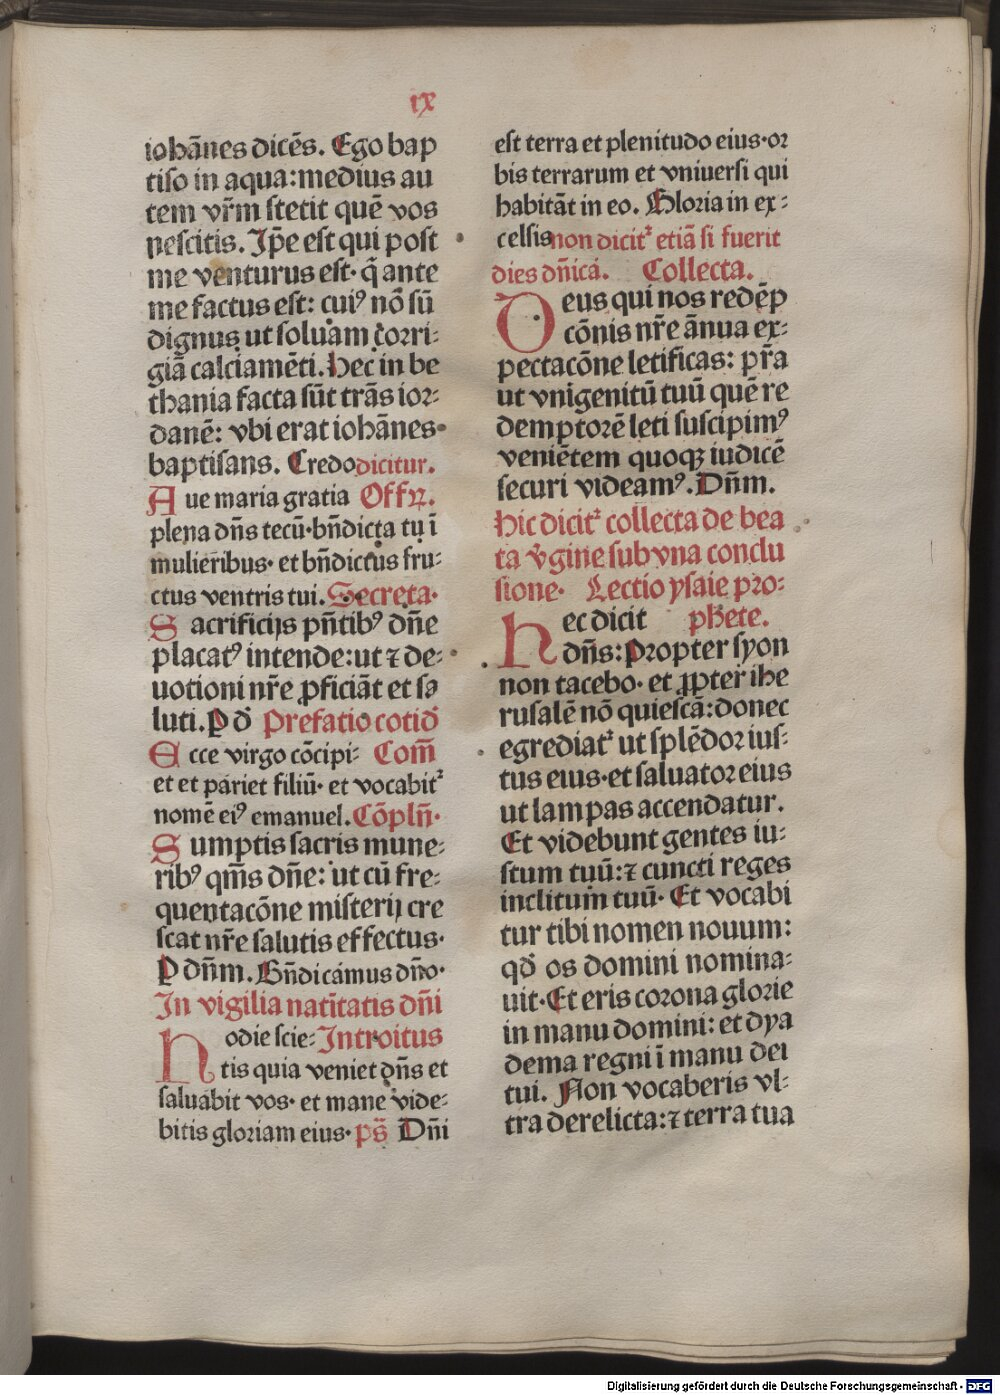 ix
iohãnes dicẽs. Ego bap
tiso in aqua: medius au
tem vr̃m stetit quẽ vos
nescitis. Ip̃e est qui post
me venturus est· q̃ ante
me factus est: cuiꝰ nõ sũ
dignus ut soluam corri⸗
giã calciamẽti. Hec in be
thania facta sũt trãs ior⸗
danẽ: vbi erat iohãnes
baptisans. Credo dicitur.
Aue maria gratia Offꝝ.
plena dñs tecũ· bñdicta tu ĩ
mulieribus· et bñdictus fru⸗
ctus ventris tui. Secreta·
Sacrificijs pñtibꝰ dñe
placatꝰ intende: ut ⁊ de⸗
uotioni nr̃e ꝓficiãt et sa
luti. P d̃ Prefatio cotid̃
Ecce virgo cõcipi⸗ Com̃
et et pariet filiũ· et vocabitᷣ
nomẽ eiꝰ emanuel. Cõplñ·
Sumptis sacris mune⸗
ribꝰ qm̃s dñe: ut cũ fre⸗
quentacõne misterij cre
scat nr̃e salutis effectus·
P dñm. Bñdicamus dño·
In vigilia natĩtatis dñi
Hodie scie⸗ Introitus
tis quia veniet dñs et
saluabit vos· et mane vide⸗
bitis gloriam eius· ps̃ Dñi
est terra et plenitudo eius· or
bis terrarum et vniuersi qui
habitãt in eo. Gloria in ex⸗
celsis non dicitᷣ etiã si fuerit
dies dñica. Collecta.
Deus qui nos redẽp
cõnis nr̃e ãnua ex⸗
pectacõne letificas: pr̃a
ut vnigenitũ tuũ quẽ re
demptorẽ leti suscipimꝰ
veniẽtem quoqꝫ iudicẽ
securi videamꝰ. Dñm.
Hic dicitᷣ collecta de bea
ta v̾gine sub vna conclu
sione· Lectio ysaie pro⸗
Hec dicit phete.
dñs: Propter syon
non tacebo· et ꝓpter ihe
rusalẽ nõ quiescã: donec
egrediatᷣ ut splẽdor ius⸗
tus eius· et saluator eius
ut lampas accendatur.
Et videbunt gentes iu⸗
stum tuũ: ⁊ cuncti reges
inclitum tuũ· Et vocabi
tur tibi nomen nouum:
qd̃ os domini nomina⸗
uit· Et eris corona glorie
in manu domini: et dya
dema regni ĩ manu dei
tui. Non vocaberis vl⸗
tra derelicta: ⁊ terra tua
Digitalisierung gefördert durch die Deutsche Forschungsgemeinschaft - DFG